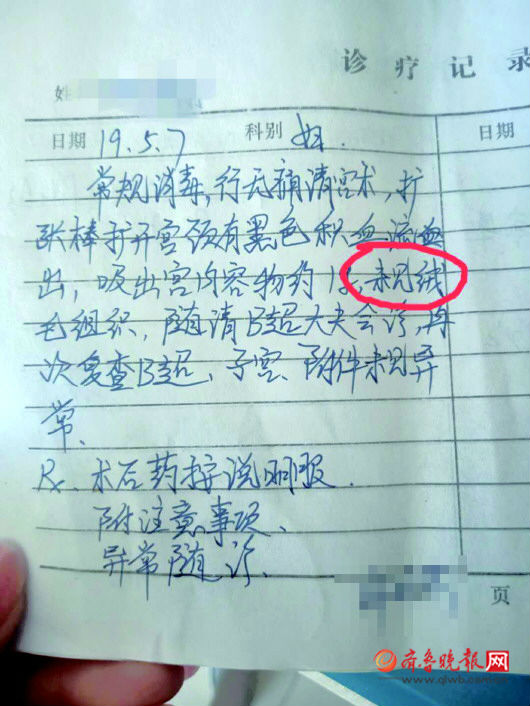 诊疗记录
姓
日期 19.5.7 科别 妇. 日期
常规消毒,行无痛清宫术,扩
张棒扩开宫颈有黑色积血流血
出,吸出宫内容物约1,未见绒
毛组织,随请B超大夫会诊,再
次复查B超、子宫、附件未见异
常.
Rx. 术后药按说明服
附注意事项、
异常随诊、
页
齐鲁晚报网
www.qlwb.com.cn